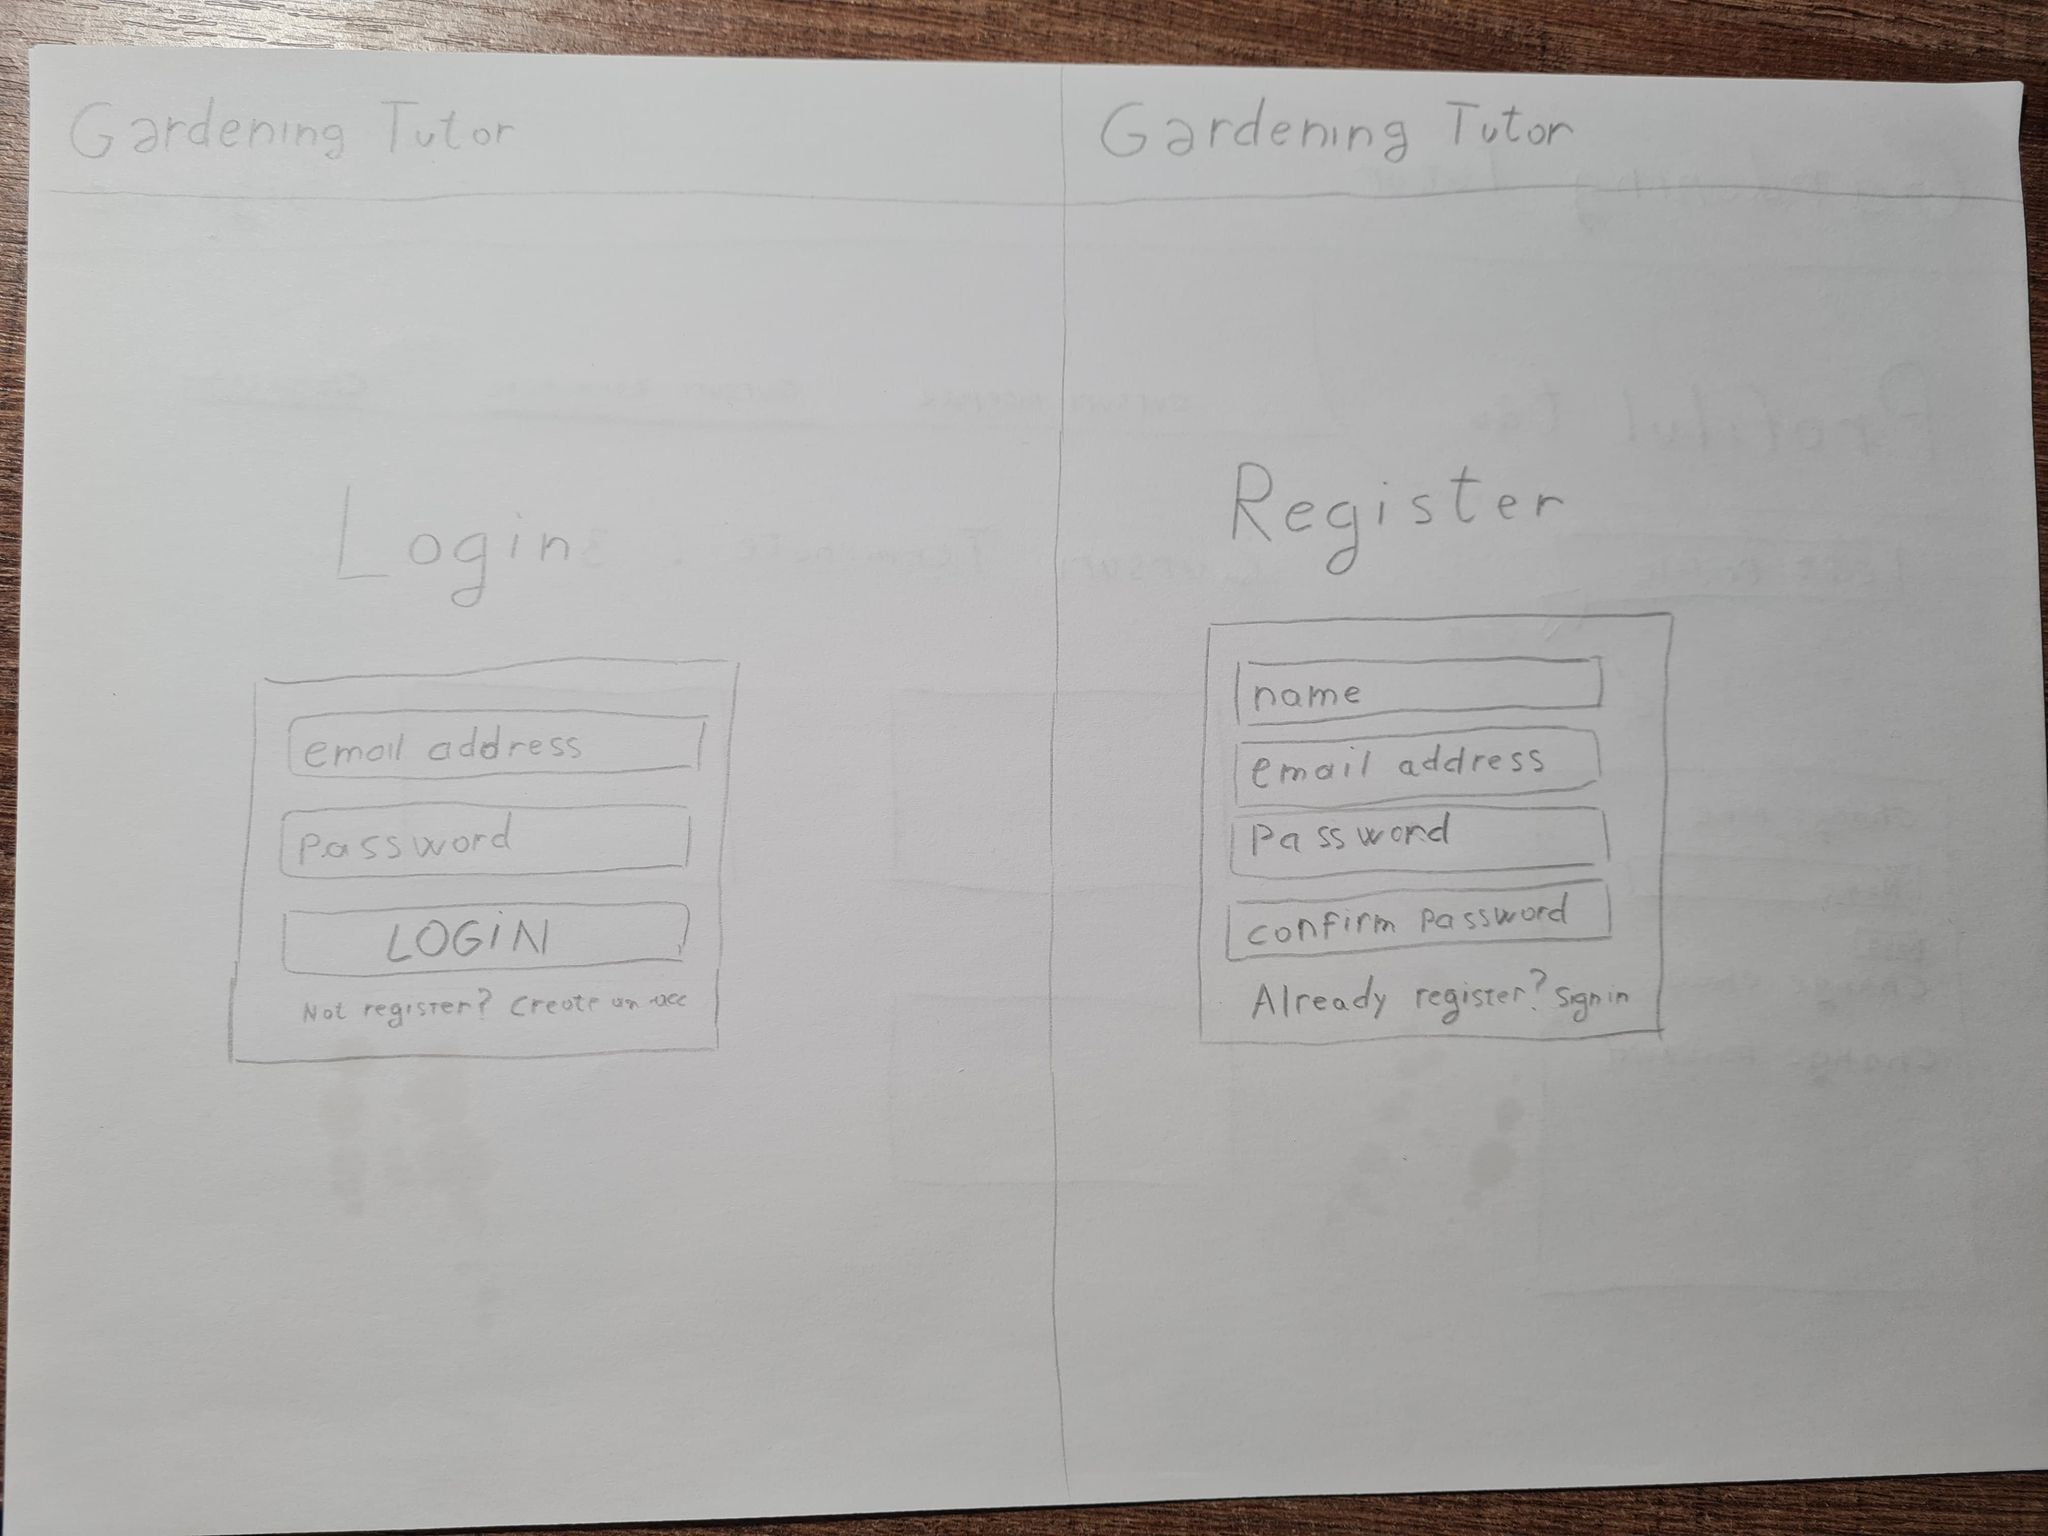 Gardening Tutor
Login
email address
Password
LOGIN
Not register? Create an acc
Gardening Tutor
Register
name
email address
Password
confirm password
Already register? Sign in